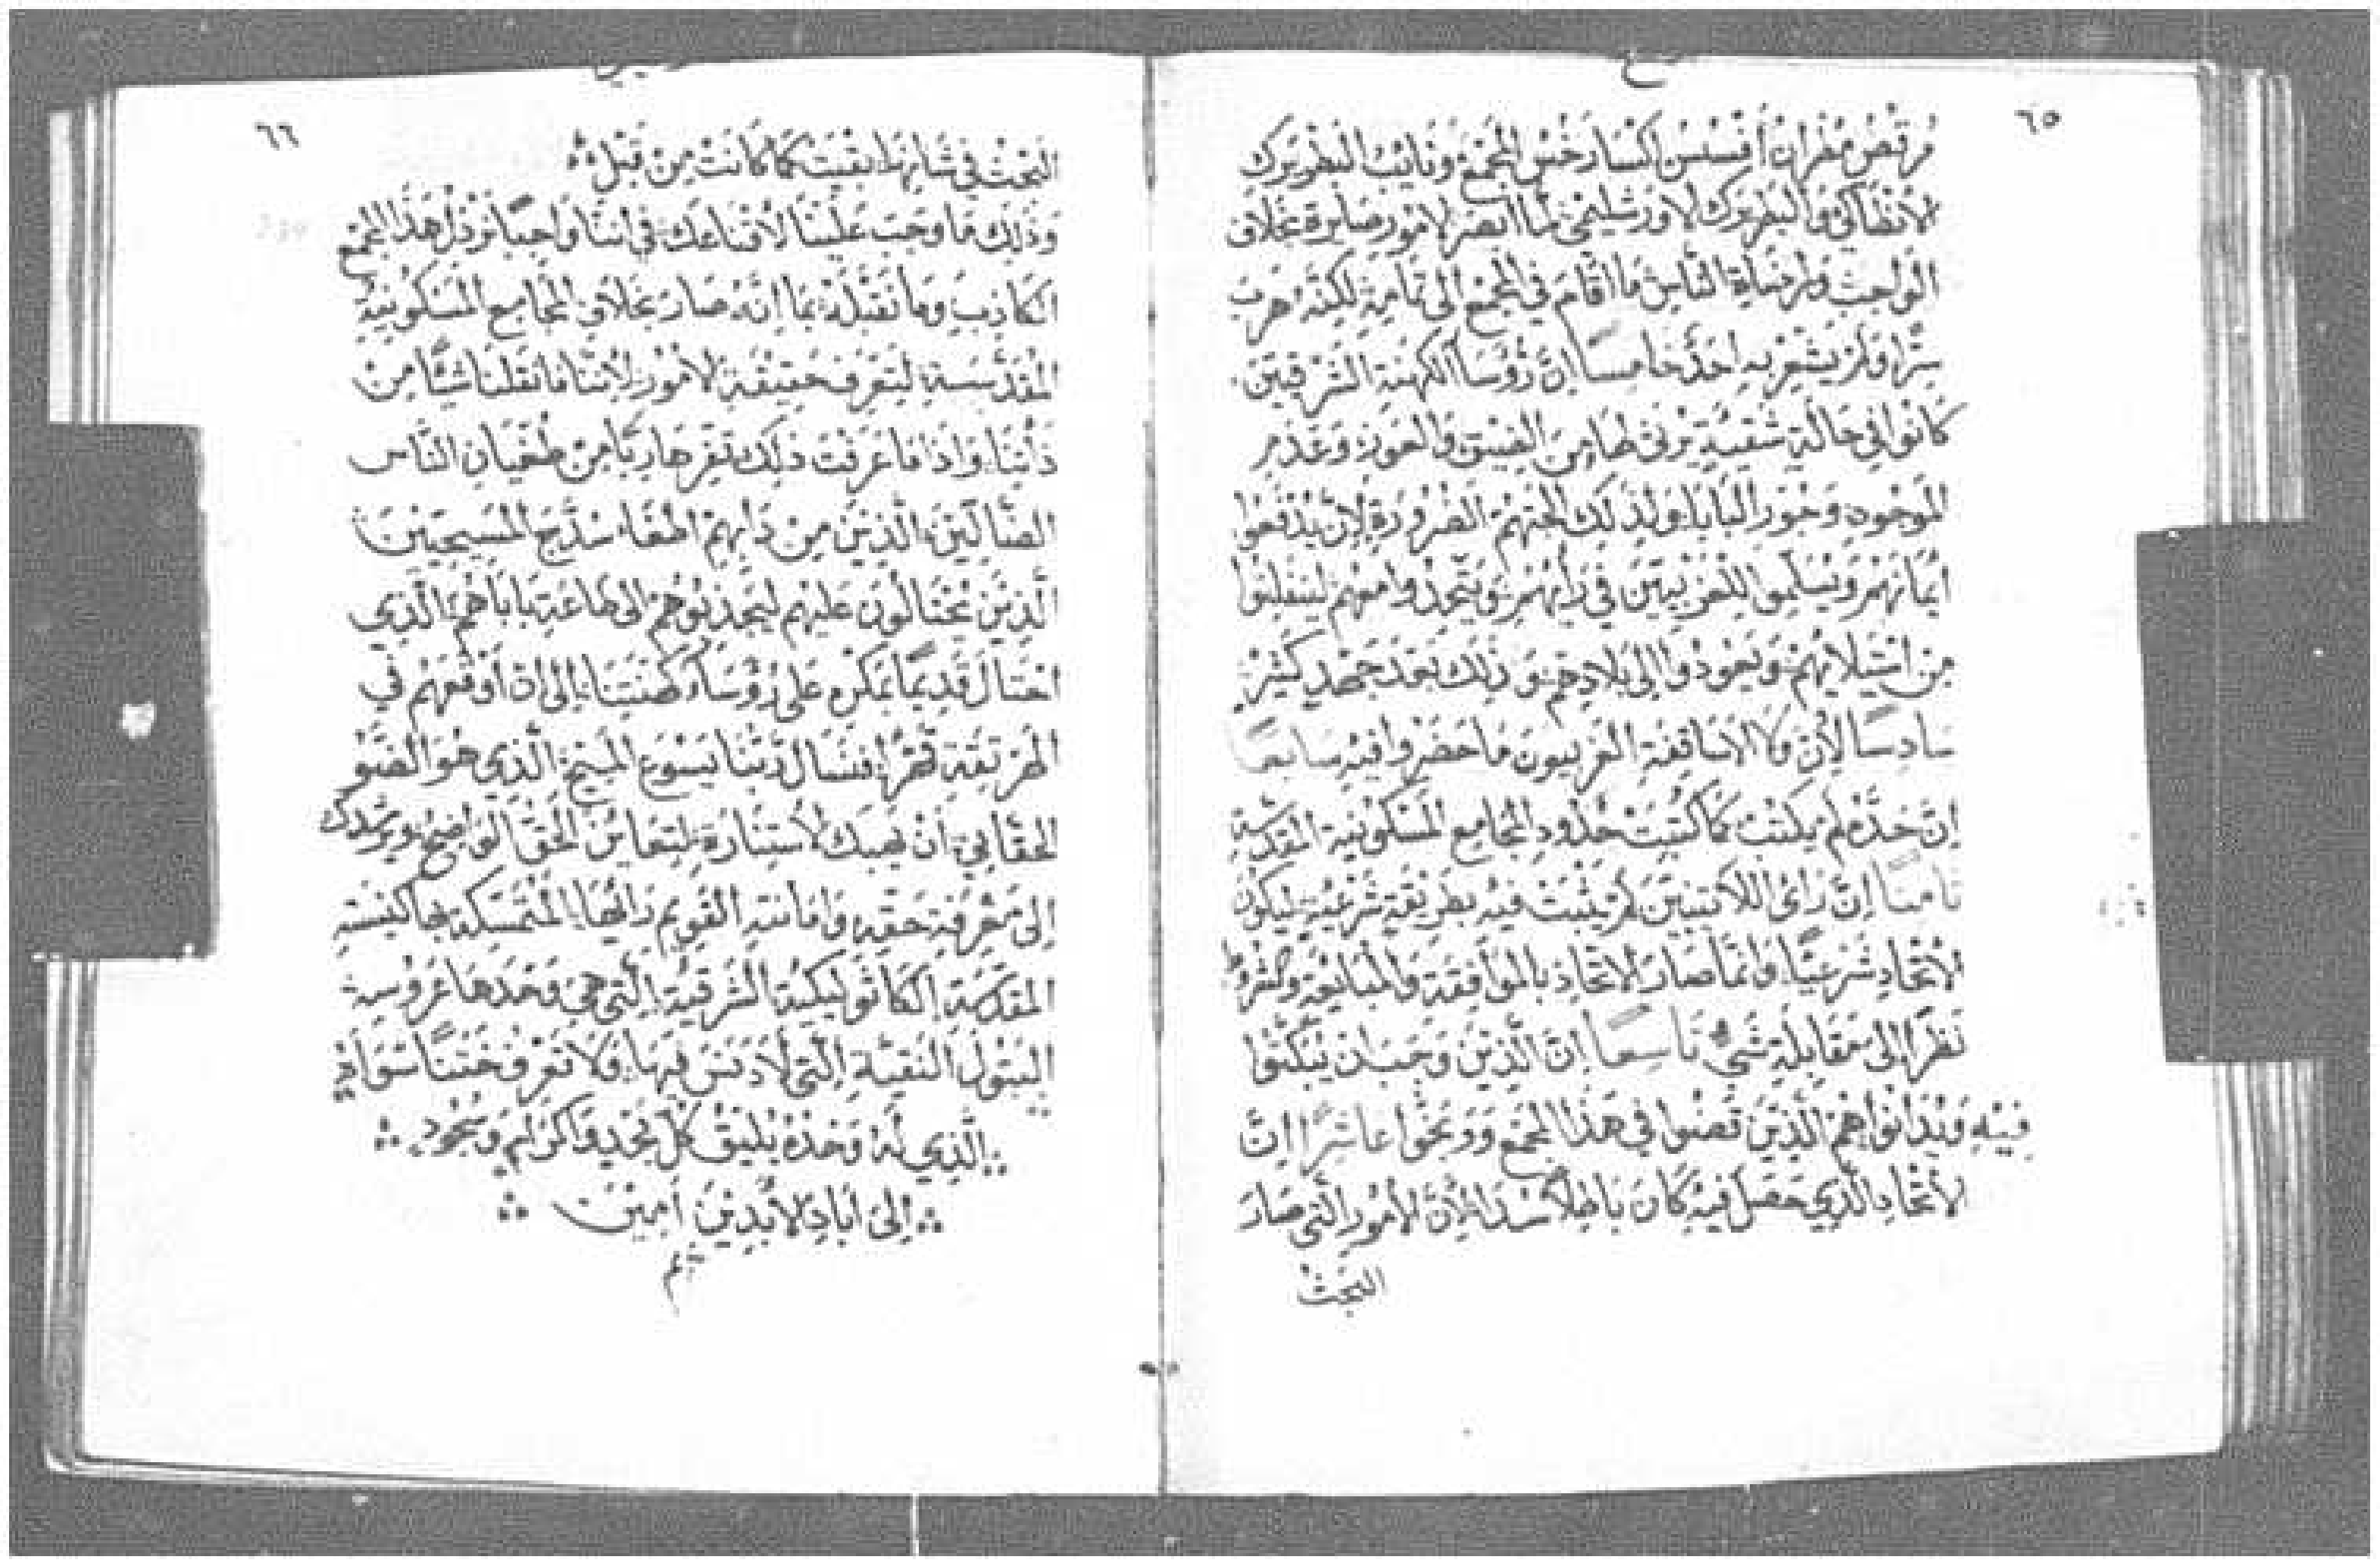 ٦٥
مرقص مطران أفسس اكسارخس المجمع ونايب البطريرك
الانطاكي والبطريرك الاورشليمي لما ابصر الامور صايرة بخلاف
الواجب ولمرضاة الناس ما اقام في المجمع الى تمامه لكنه هرب
سرا ولم يشعر به احد خامسا ان رؤسا الكهنة الشرقيين
كانوا في حالة شقية يرثى لها من الضيق والعوز وعدم
الموجود وجور البابا ولذلك الجتهم الضرورة لان يدفعوا
ايمانهم ويسلموا للغربيين في رأيهم ويتحدوا معهم لينفلتوا
من استيلايهم ويعودوا الى بلادهم وذلك بعد جهد كثير
سادسا لان ولا الاساقفة الغربيون ما حضروا فيه سابعا
ان حده لم يكتب كما كتبت حدود المجامع المسكونية المقدسة
ثامنا ان رأى اللاتينيين لم يثبت فيه بطريقة شرعية ليكون
الاتحاد شرعيا وانما صار الاتحاد بالموافقة والمبايعة وبشروط
نظرا الى مقابلة شي تاسعا ان الذين وجب ان يبكتوا
فيه ويدانوا هم الذين قضوا في هذا المجمع ووبخوا عاشرا ان
الاتحاد الذي حصل فيه كان باطلا سدا لان الامور التي صار
البحث
٦٦
البحث في شانها بقيت كما كانت من قبل
وذلك ما وجب علينا لاقناعك في اننا واجبا نرذل هذا المجمع
الكاذب وما نقبله بما انه صار بخلاف المجامع المسكونية
المقدسة لتعرف حقيقة الامور لاننا ما نقلنا شيا من
ذاتنا واذا ما عرفت ذلك تفر هاربا من طغيان الناس
الضالين الذين من دابهم اطغا سذج المسيحيين
الذين يحتالون عليهم ليجذبوهم الى طاعة باباهم الذي
احتال قديما بمكره على رؤساء كهنتنا الى ان أوقعهم في
الهرتقة قهرا فنسال ربنا يسوع المسيح الذي هو الضو
الحقاني أن يهبك الاستنارة لتعاين الحق الواضح ويرشدك
الى معرفة حقه وامانته القويم رائها المتمسكة بها كنيسته
المقدسة الكاثوليكية الشرقية التي هي وحدها عروسه
البتول النقية التي لا دنس فيها ولا تعرف ختنا سواه
الذي له وحده يليق كل مجد واكرام وسجود
الى اباد الابدين امين
تم